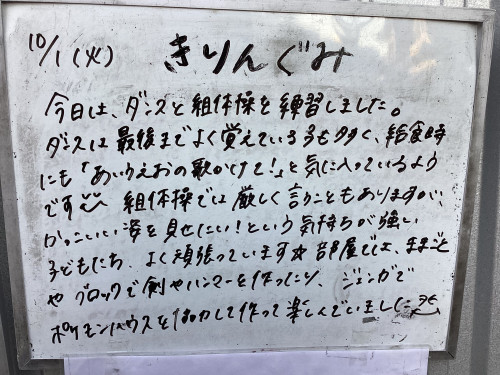 10/1(火) きりんぐみ
今日は、ダンスと組体操を練習しました。
ダンスは最後までよく覚えている子も多く、給食時
にも「あいうえおの歌かけて!」と気に入っているよう
です 組体操では厳しく言うこともありますが、
かっこいい姿を見せたい!という気持ちが強い
子どもたち、よく頑張っています☆部屋では、ままごと
やブロックで剣やハンマーを作ったり、ジェンガで
ポケモンハウスを協力して作って楽しんでいました